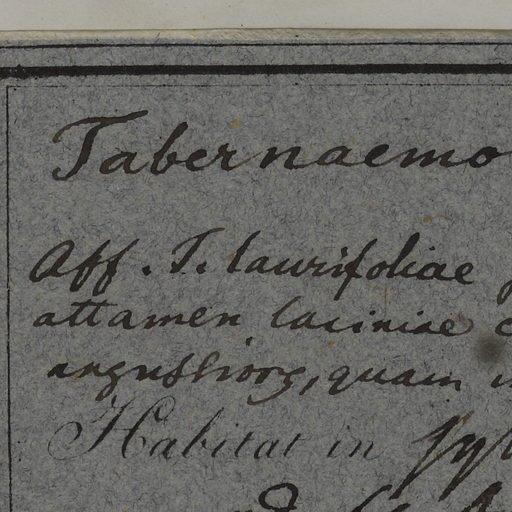 Tabernaemo
Aff. T. laurifoliae
attamen laciniae
angustiores, quam
Habitat in